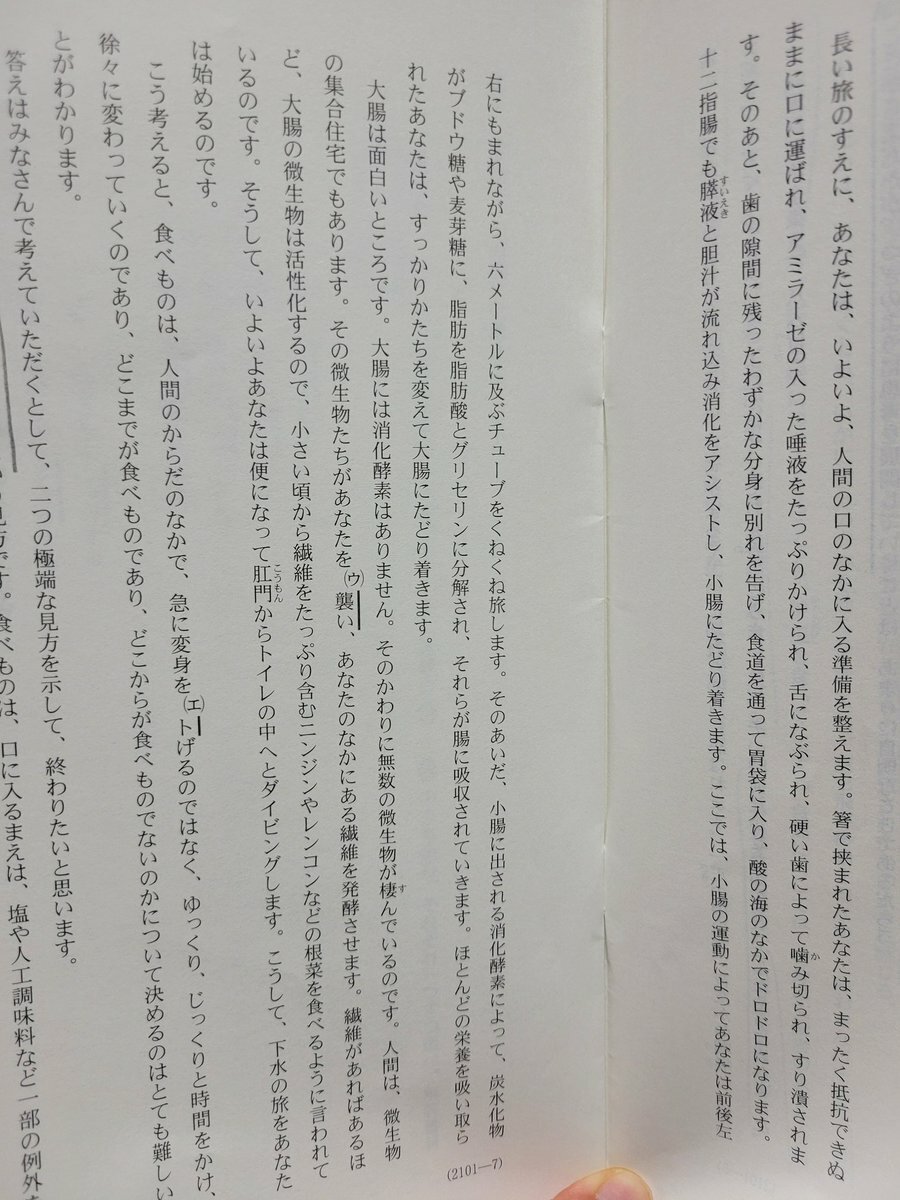 長い旅のすえに、あなたは、いよいよ、人間の口のなかに入る準備を整えます。箸で挟まれたあなたは、まったく抵抗できぬ
ままに口に運ばれ、アミラーゼの入った唾液をたっぷりかけられ、舌になぶられ、硬い歯によって噛み切られ、すり潰されま
す。そのあと、歯の隙間に残ったわずかな分身に別れを告げ、食道を通って胃袋に入り、酸の海のなかでドロドロになります。
十二指腸でも膵液と胆汁が流れ込み消化をアシストし、小腸にたどり着きます。ここでは、小腸の運動によってあなたは前後左
右にもまれながら、六メートルに及ぶチューブをくねくね旅します。そのあいだ、小腸に出される消化酵素によって、炭水化物
がブドウ糖や麦芽糖に、脂肪を脂肪酸とグリセリンに分解され、それらが腸に吸収されていきます。ほとんどの栄養を吸い取ら
れたあなたは、すっかりかたちを変えて大腸にたどり着きます。
大腸は面白いところです。大腸には消化酵素はありません。そのかわりに無数の微生物が棲んでいるのです。人間は、微生物
の集合住宅でもあります。その微生物たちがあなたを㈦襲い、あなたのなかにある繊維を発酵させます。繊維があればあるほ
ど、大腸の微生物は活性化するので、小さい頃から繊維をたっぷり含むニンジンやレンコンなどの根菜を食べるように言われて
いるのです。そうして、いよいよあなたは便になって肛門からトイレの中へとダイビングします。こうして、下水の旅をあなた
は始めるのです。
こう考えると、食べものは、人間のからだのなかで、急に変身を(エ)トげるのではなく、ゆっくり、じっくりと時間をかけ、
徐々に変わっていくのであり、どこまでが食べものであり、どこからが食べものでないのかについて決めるのはとても難しい
とがわかります。
答えはみなさんで考えていただくとして、二つの極端な見方を示して、終わりたいと思います。
見方です。食べものは、口に入るまえは、塩や人工調味料など一部の例外
(2101—7)